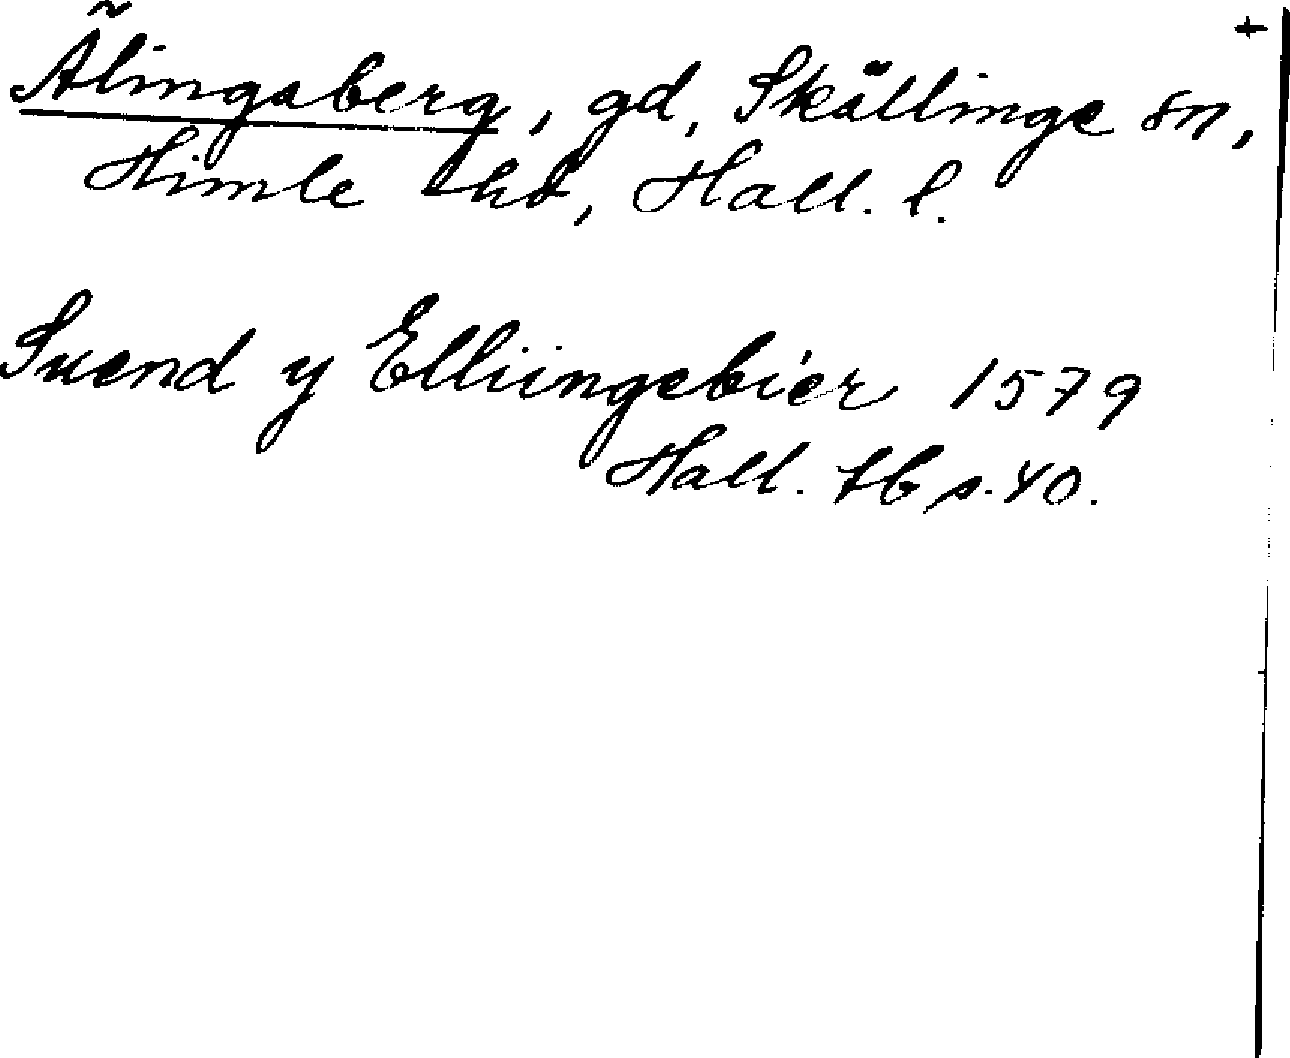 +
Älingaberg, gd, Skällinge sn,
Himle hd, Hall. l.
Suend y Elliingebier 1579
Hall. tb s. 40.